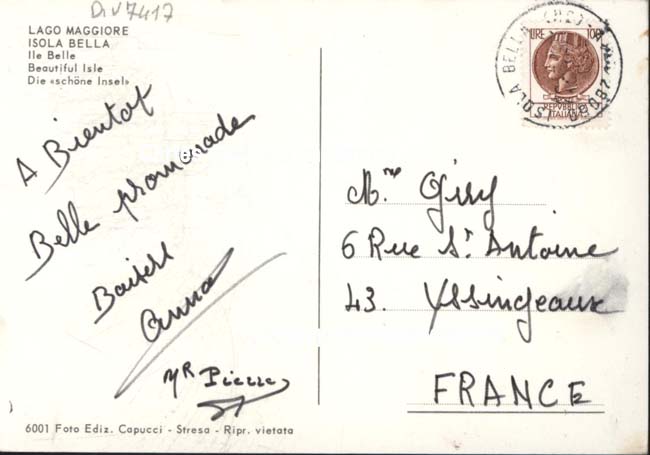 Div7417
LAGO MAGGIORE
ISOLA BELLA
Ile Belle
Beautiful Isle
Die «schöne Insel»
A Bientot
Belle promenade
Baisers
Anna
Mr Pierre
6001 Foto Ediz. Capucci - Stresa - Ripr. vietata
LIRE 100
REPUBBLICA
ITALIANA
ISOLA BELLA
28086
Mme Giry
6 Rue St Antoine
43. Yssingeaux
FRANCE